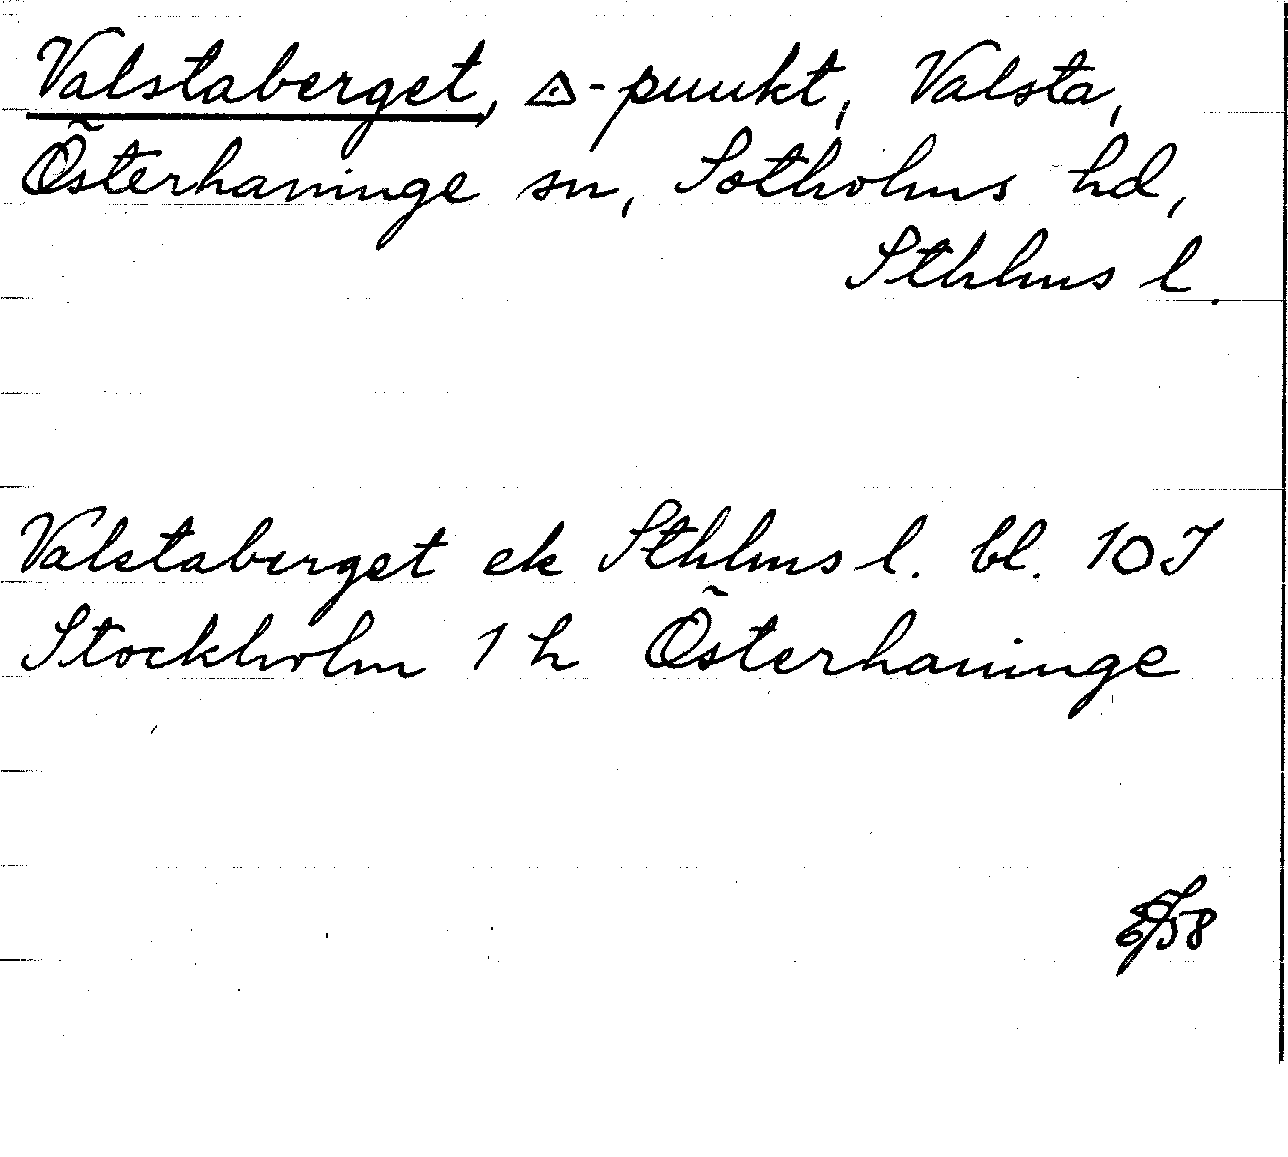 Valstaberget, △-punkt, Valsta,
Österhaninge sn, Sotholms hd,
Sthlms l.
Valstaberget ek Sthlms l. bl. 10I
Stockholm 1 h Österhaninge